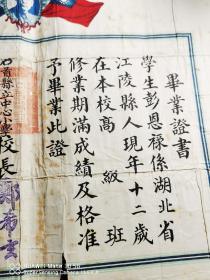 畢業證書
學生彭恩祿係湖北省
江陵縣人現年十二歲
在本校高級班
修業期滿成績及格准
予畢業此證
石首縣立中心小學校長